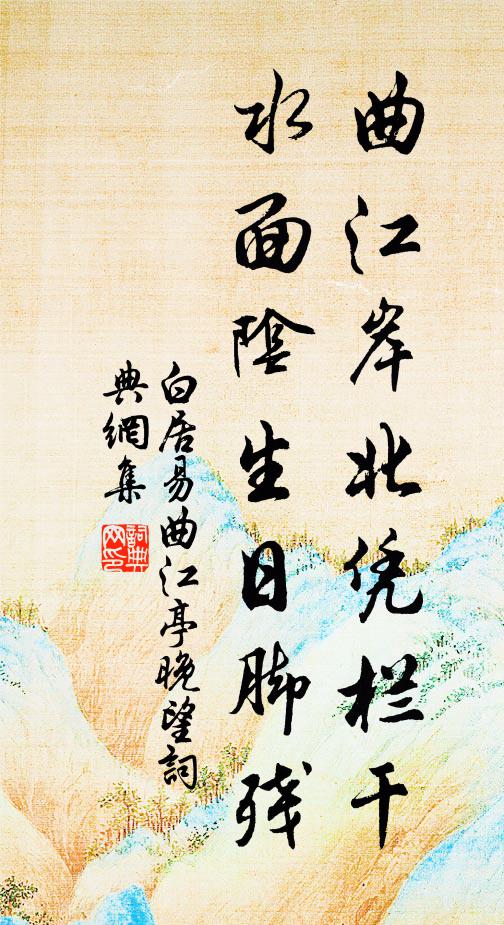 曲江岸北凭栏干
水面陰生日脚残
白居易曲江亭晚望詞
典網集
詞典
网印